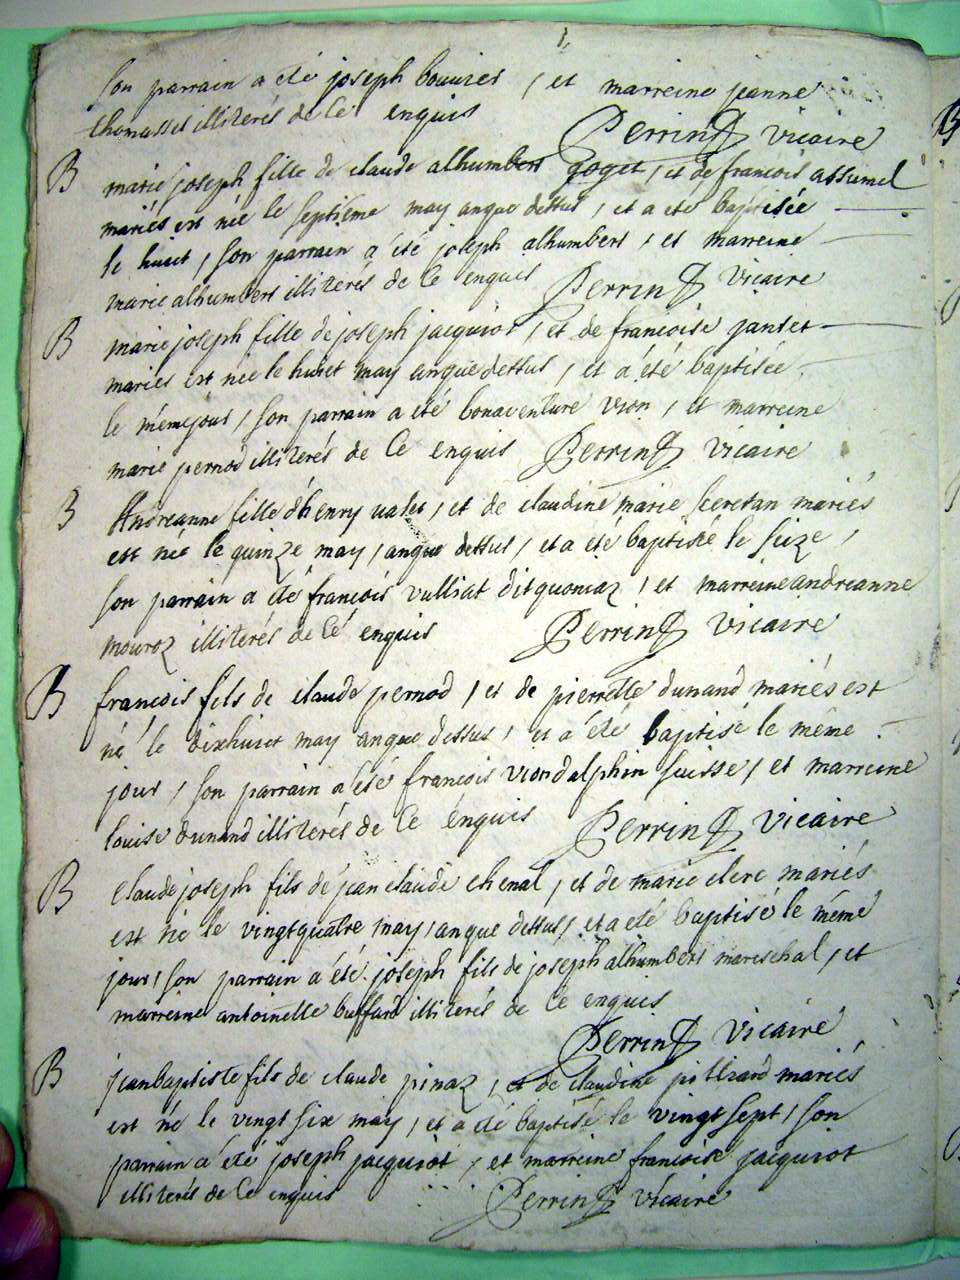 son parrain a été joseph bouvier, et marreine jeanne
thomasset illiterés de ce enquis Perrin vicaire
B marie joseph fille de claude alhumbert goget, et de francois assumel
mariés est née le septieme may an que dessus, et a eté baptisée
le huict, son parrain a été joseph alhumbert, et marreine
marie alhumbert illiterés de ce enquis Perrin vicaire
B marie joseph fille de joseph jacquiot, et de francoise janset
mariés est née le huict may an que dessus, et a été baptisée
le même jour, son parrain a eté bonaventure vion, et marreine
marie pernod illiterés de ce enquis Perrin vicaire
B Andreanne fille d'henry valet, et de claudine marie secretan mariés
est née le quinze may, an que dessus, et a été baptisée le seize,
son parrain a été francois vulliat dit quoniaz, et marreine andreanne
mouroz illiterés de ce enquis Perrin vicaire
B francois fils de claude pernod, et de pierrette dunand mariés est
né le dixhuict may an que dessus, et a été baptisé le même
jour, son parrain a été francois vion dalphin suisse, et marreine
louise dunand illiterés de ce enquis Perrin vicaire
B Claude joseph fils de jean claude chenal, et de marie clerc mariés
est né le vingtquatre may, an que dessus, et a eté baptisé le même
jour, son parrain a été joseph fils de joseph alhumbert mareschal, et
marreine antoinette buffard illiterés de ce enquis
Perrin vicaire
B jean baptiste fils de claude pinaz, et de claudine pilliard mariés
est né le vingt six may, et a été baptisé le vingt sept, son
parrain a été joseph jacquiot, et marreine francoise jacquiot
illiterés de ce enquis Perrin vicaire